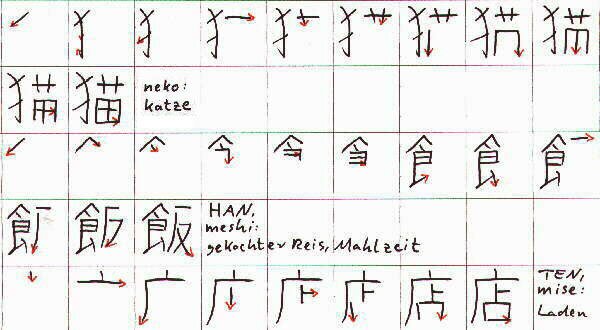 猫 neko:
katze
飯 HAN,
meshi:
gekochter Reis, Mahlzeit
店 TEN,
mise:
Laden